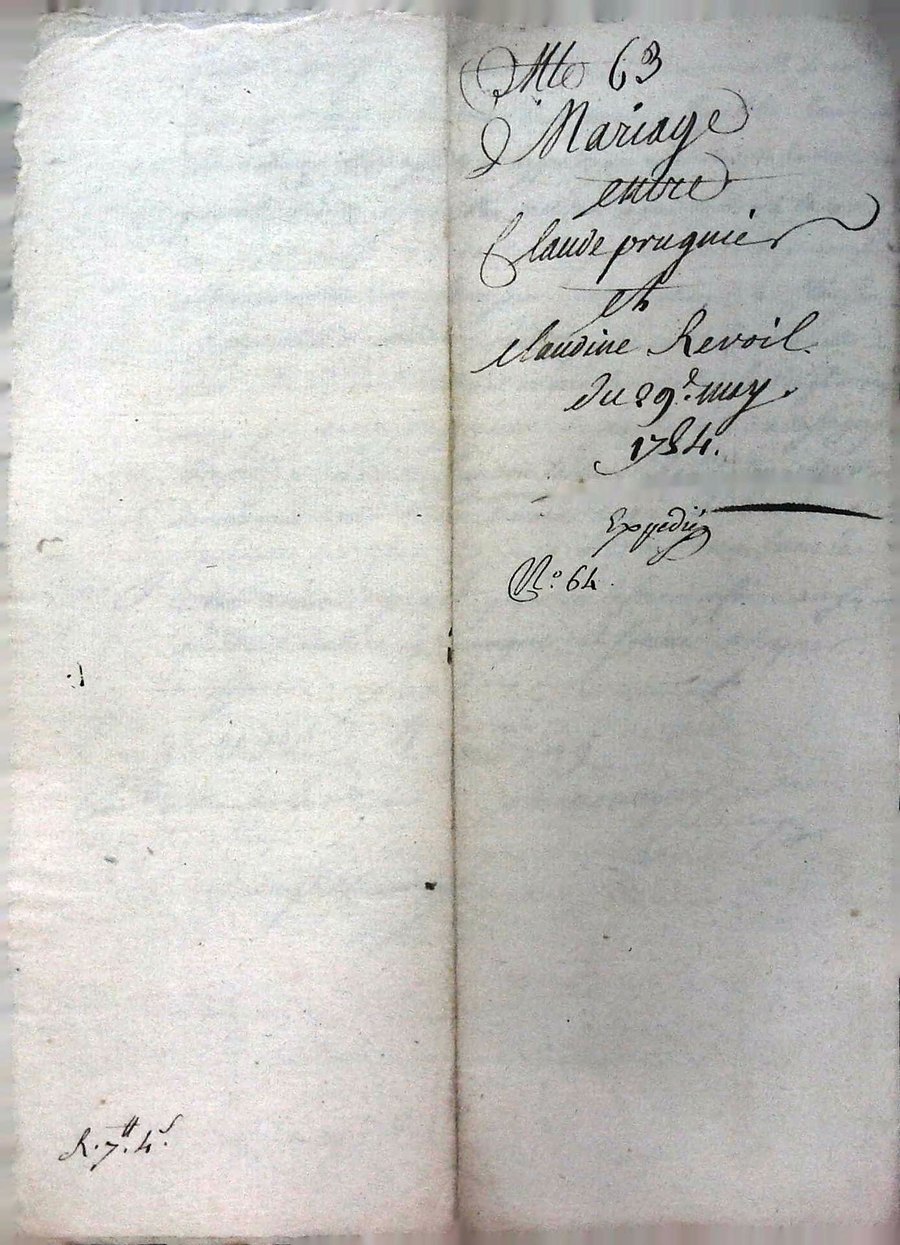 Cotte 63
d Mariage
entre
Claude prugnier
et
claudine Revoil.
du 29e. may
1784.
Expedié
N.o 64.
R. 7tt. 4s.